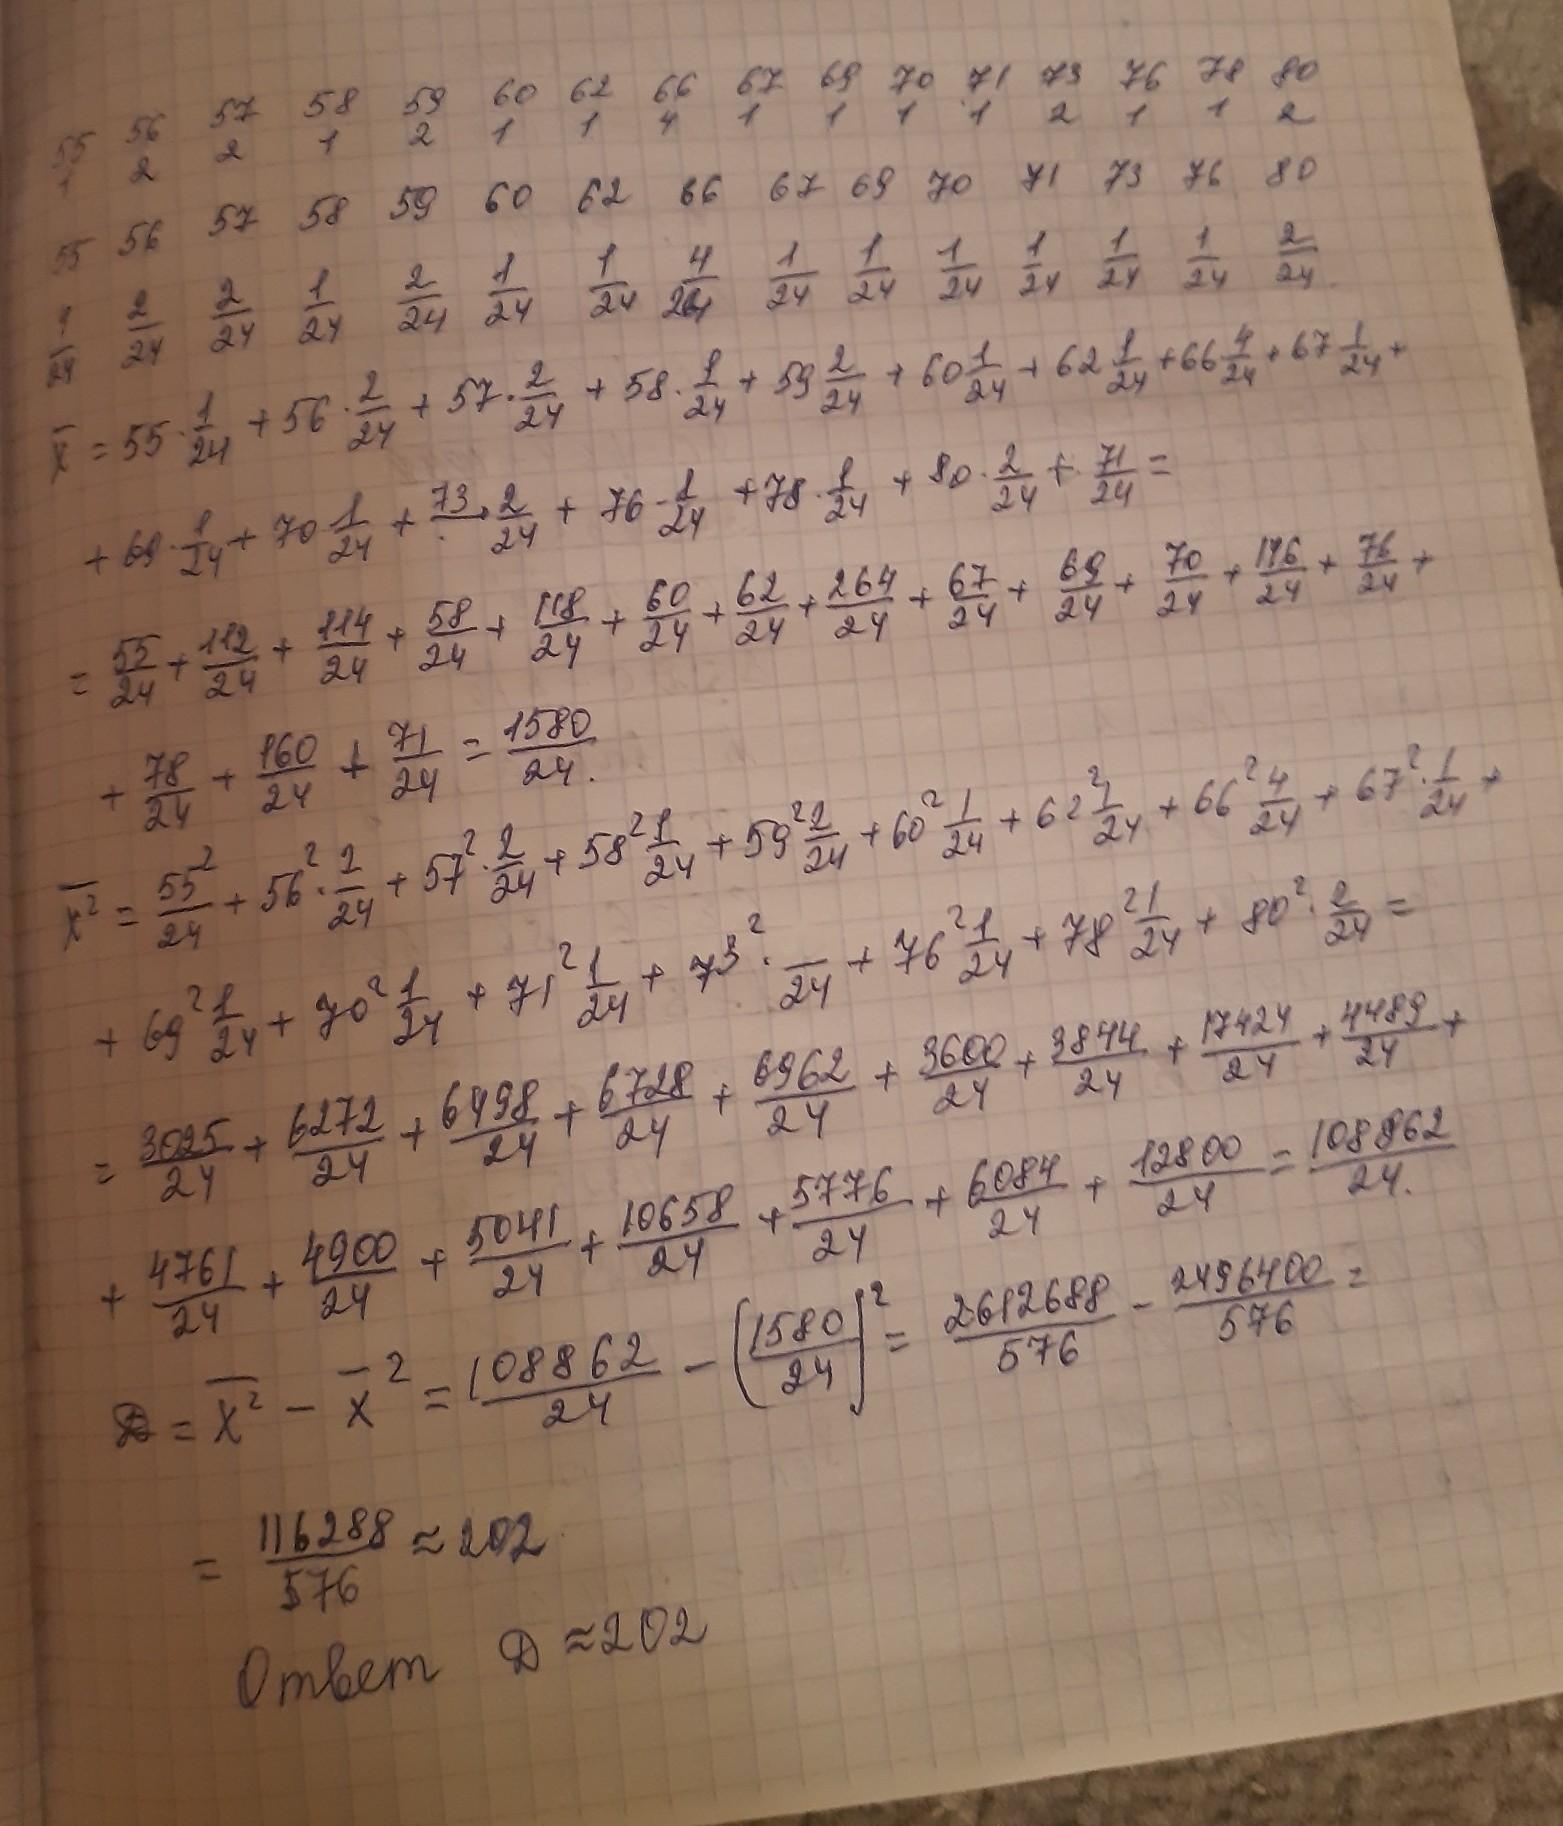 55 56 57 58 59 60 62 66 67 69 70 71 73 76 78 80
1 2 2 1 2 1 1 4 1 1 1 1 2 1 1 2
55 56 57 58 59 60 62 66 67 69 70 71 73 76 80
1/24 2/24 2/24 1/24 2/24 1/24 1/24 4/24 1/24 1/24 1/24 1/24 1/24 1/24 2/24
x̄ = 55 · 1/24 + 56 · 2/24 + 57 · 2/24 + 58 · 1/24 + 59 2/24 + 60 1/24 + 62 1/24 + 66 4/24 + 67 1/24 +
+ 69 · 1/24 + 70 1/24 + 73 · 2/24 + 76 · 1/24 + 78 · 1/24 + 80 · 2/24 + 71/24 =
= 55/24 + 112/24 + 114/24 + 58/24 + 118/24 + 60/24 + 62/24 + 264/24 + 67/24 + 69/24 + 70/24 + 146/24 + 76/24 +
+ 78/24 + 160/24 + 71/24 = 1580/24.
x̄² = 55²/24 + 56² · 2/24 + 57² · 2/24 + 58² 1/24 + 59² 2/24 + 60² 1/24 + 62² 1/24 + 66² 4/24 + 67² · 1/24 +
+ 69² 1/24 + 70² 1/24 + 71² 1/24 + 73² · /24 + 76² 1/24 + 78² 1/24 + 80² · 2/24 =
= 3025/24 + 6272/24 + 6498/24 + 6728/24 + 6962/24 + 3600/24 + 3844/24 + 17424/24 + 4489/24 +
+ 4761/24 + 4900/24 + 5041/24 + 10658/24 + 5776/24 + 6084/24 + 12800/24 = 108862/24.
D = x̄² − x̄² = 108862/24 − (1580/24)² = 2612688/576 − 2496400/576 =
= 116288/576 ≈ 202
Ответ D ≈ 202